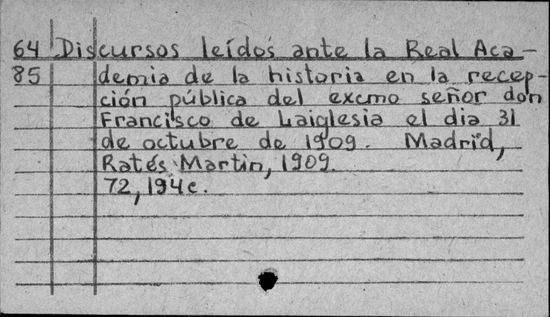 64 Discursos leídos ante la Real Aca-
85 demia de la historia en la recep-
ción pública del excmo señor don
Francisco de Laiglesia el dia 31
de octubre de 1909. Madrid,
Ratés Martin, 1909.
72, 194c.